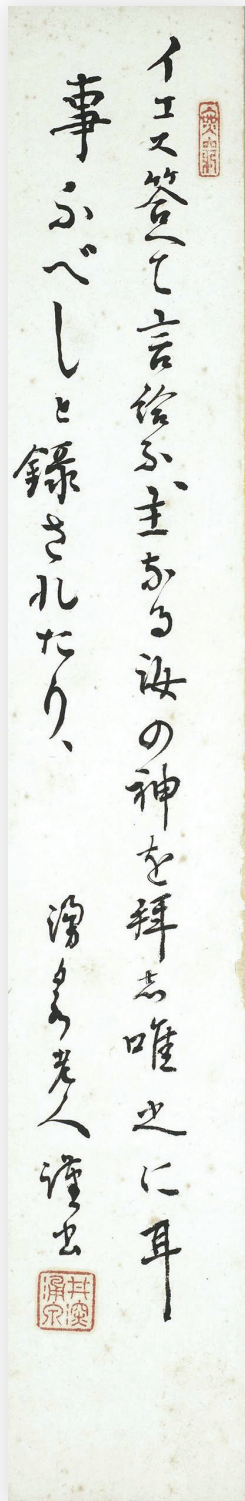 イエス答て言給ふ、主なる汝の神を拜し唯之に耳
事ふべしと錄されたり、
湧泉老人謹書
井深
涌泉